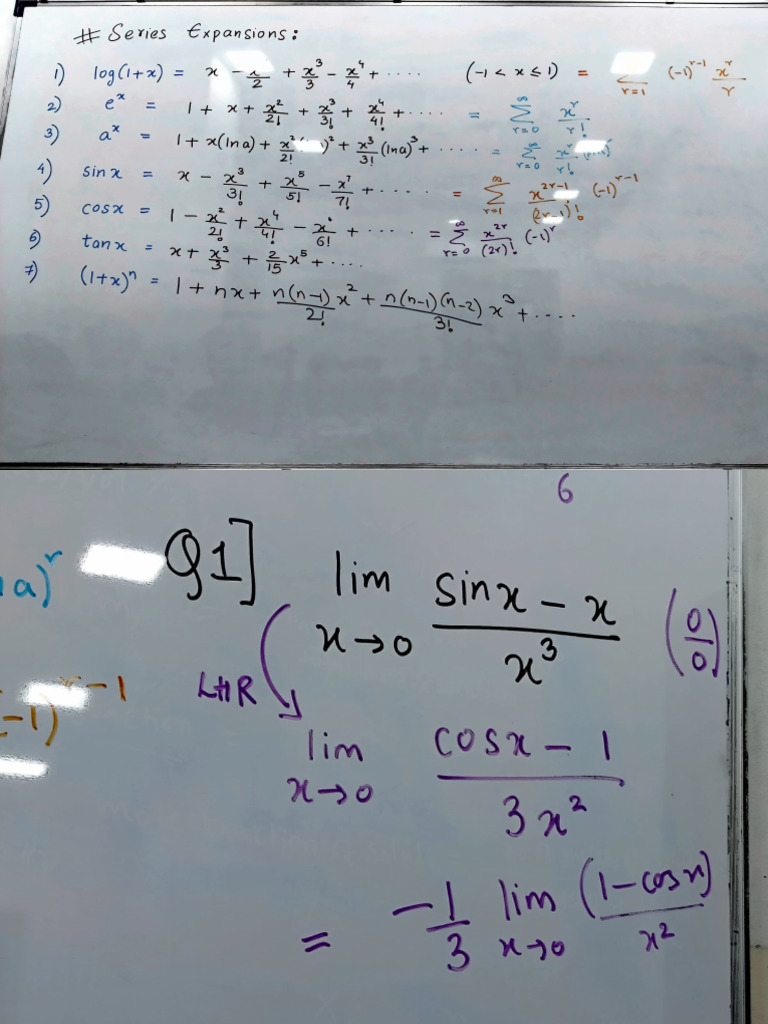 # Series Expansions:
1) log(1+x) = x - /2 + x³/3 - x⁴/4 + ···· (-1 < x ≤ 1) = r=1 (-1)^(r-1) x^r/r
2) e^x = 1 + x + x²/2! + x³/3! + x⁴/4! + ···· = ∞∑r=0 x^r/r!
3) a^x = 1 + x(ln a) + x²/2! ² + x³/3! (ln a)³ + ···· = ∞∑r=0 x^r/r!
4) sinx = x - x³/3! + x⁵/5! - x⁷/7! + ···· = ∞∑r=1 x^(2r-1)/(2r-1)! (-1)^(r-1)
5) cosx = 1 - x²/2! + x⁴/4! - x⁶/6! + ···· = ∞∑r=0 x^(2r)/(2r)! (-1)^r
6) tanx = x + x³/3 + 2/15 x⁵ + ····
7) (1+x)^n = 1 + nx + n(n-1)/2! x² + n(n-1)(n-2)/3! x³ + ····
6
a)^r
Q1] lim x→0 (sinx - x)/x³ (0/0)
-1)^(r-1)
LHR
lim x→0 (cosx - 1)/3x²
= -1/3 lim x→0 (1-cosx)/x²